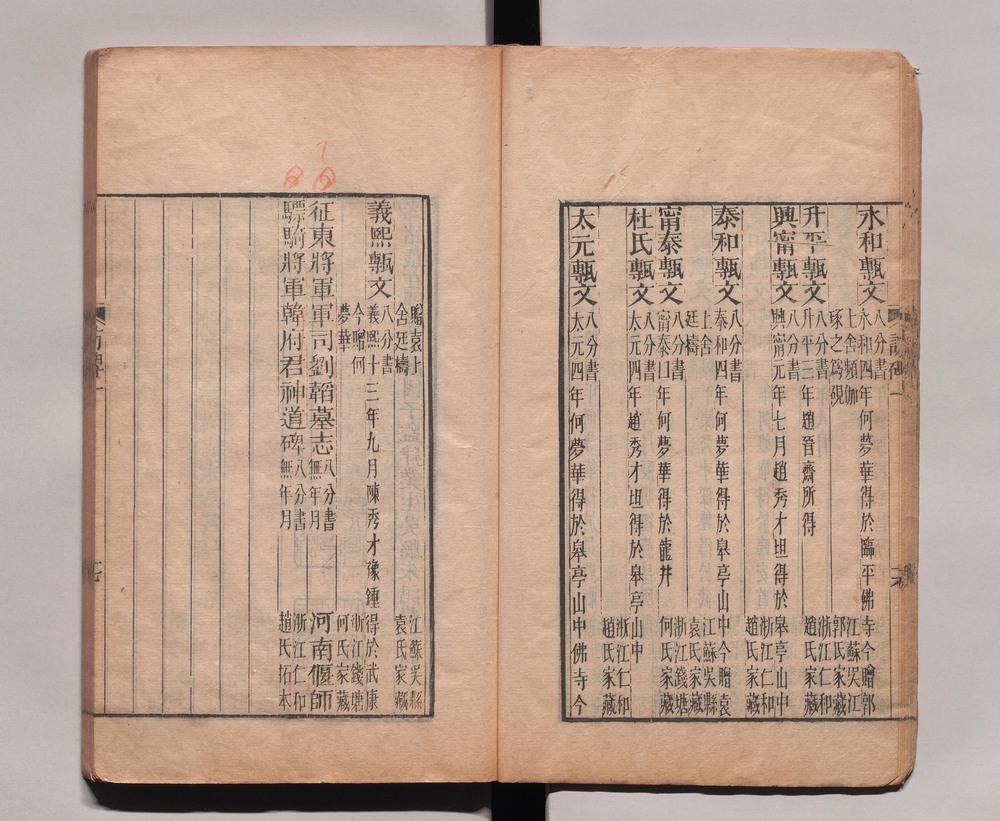 永和甎文 八分書 永和四年何夢華得於臨平佛寺今贈郭
七舍頻伽琢之為硯 江蘇吳江郭氏家藏
升平甎文 八分書 升平三年趙晉齋所得 浙江仁和趙氏家藏
興甯甎文 八分書 興甯元年七月趙秀才坦得於皋亭山中 浙江仁和趙氏家藏
泰和甎文 八分書 泰和四年何夢華得於皋亭山中今贈袁
上舍廷檮 江蘇吳縣袁氏家藏
甯泰甎文 八分書 甯泰口年何夢華得於龍井 浙江錢塘何氏家藏
杜氏甎文 八分書 太元四年趙秀才坦得於皋亭山中 浙江仁和趙氏家藏
太元甎文 八分書 太元四年何夢華得於皋亭山中佛寺今
贈袁上舍廷檮 江蘇吳縣袁氏家藏
義熙甎文 八分書 義熙十三年九月陳秀才豫鍾得於武康
今贈何夢華 浙江錢塘何氏家藏
征東將軍軍司劉韜墓志 八分書 無年月 河南偃師
驃騎將軍韓府君神道碑 八分書 無年月 浙江仁和趙氏拓本